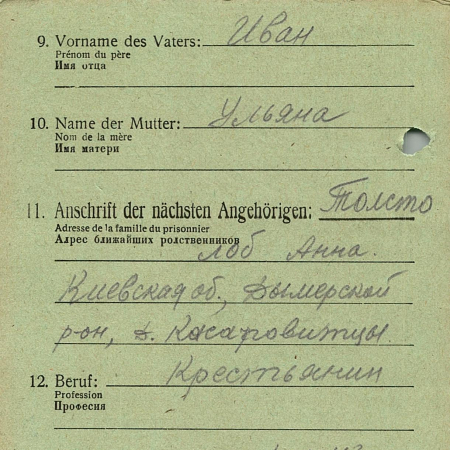 9. Vorname des Vaters: Иван
Prénom du père
Имя отца
10. Name der Mutter: Ульяна
Nom de la mère
Имя матери
11. Anschrift der nächsten Angehörigen: Толсто
Adresse de la famille du prisonnier
Адрес ближайших родственников
лоб Анна.
Киевская об., Дымерской
р-он, д. Касаровитцы.
12. Beruf: Крестьянин
Profession
Професия